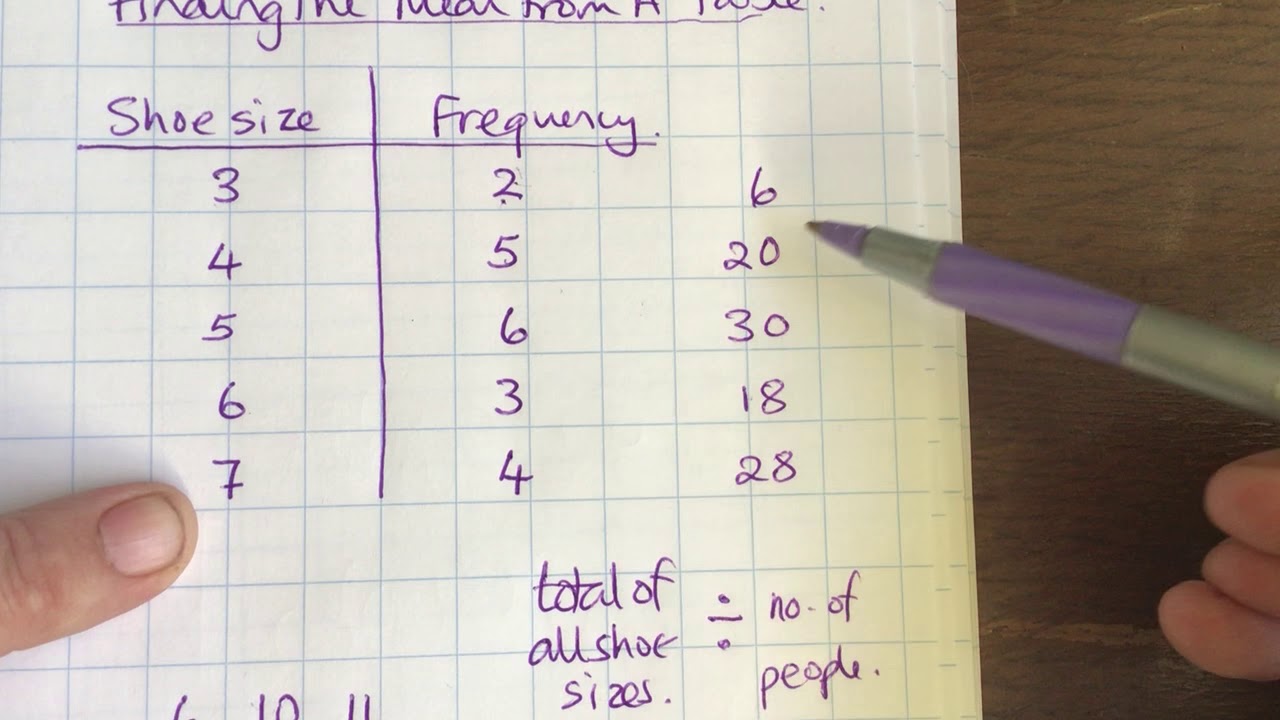 Finding The Mean From A Table.
Shoe size Frequency.
3 2 6
4 5 20
5 6 30
6 3 18
7 4 28
total of ÷ no. of
all shoe people.
sizes.
10 11